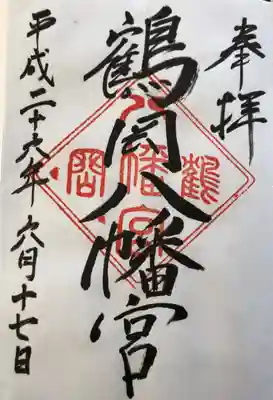 奉拝
鶴岡八幡宮
鶴岡八幡宮
平成二十六年六月十七日